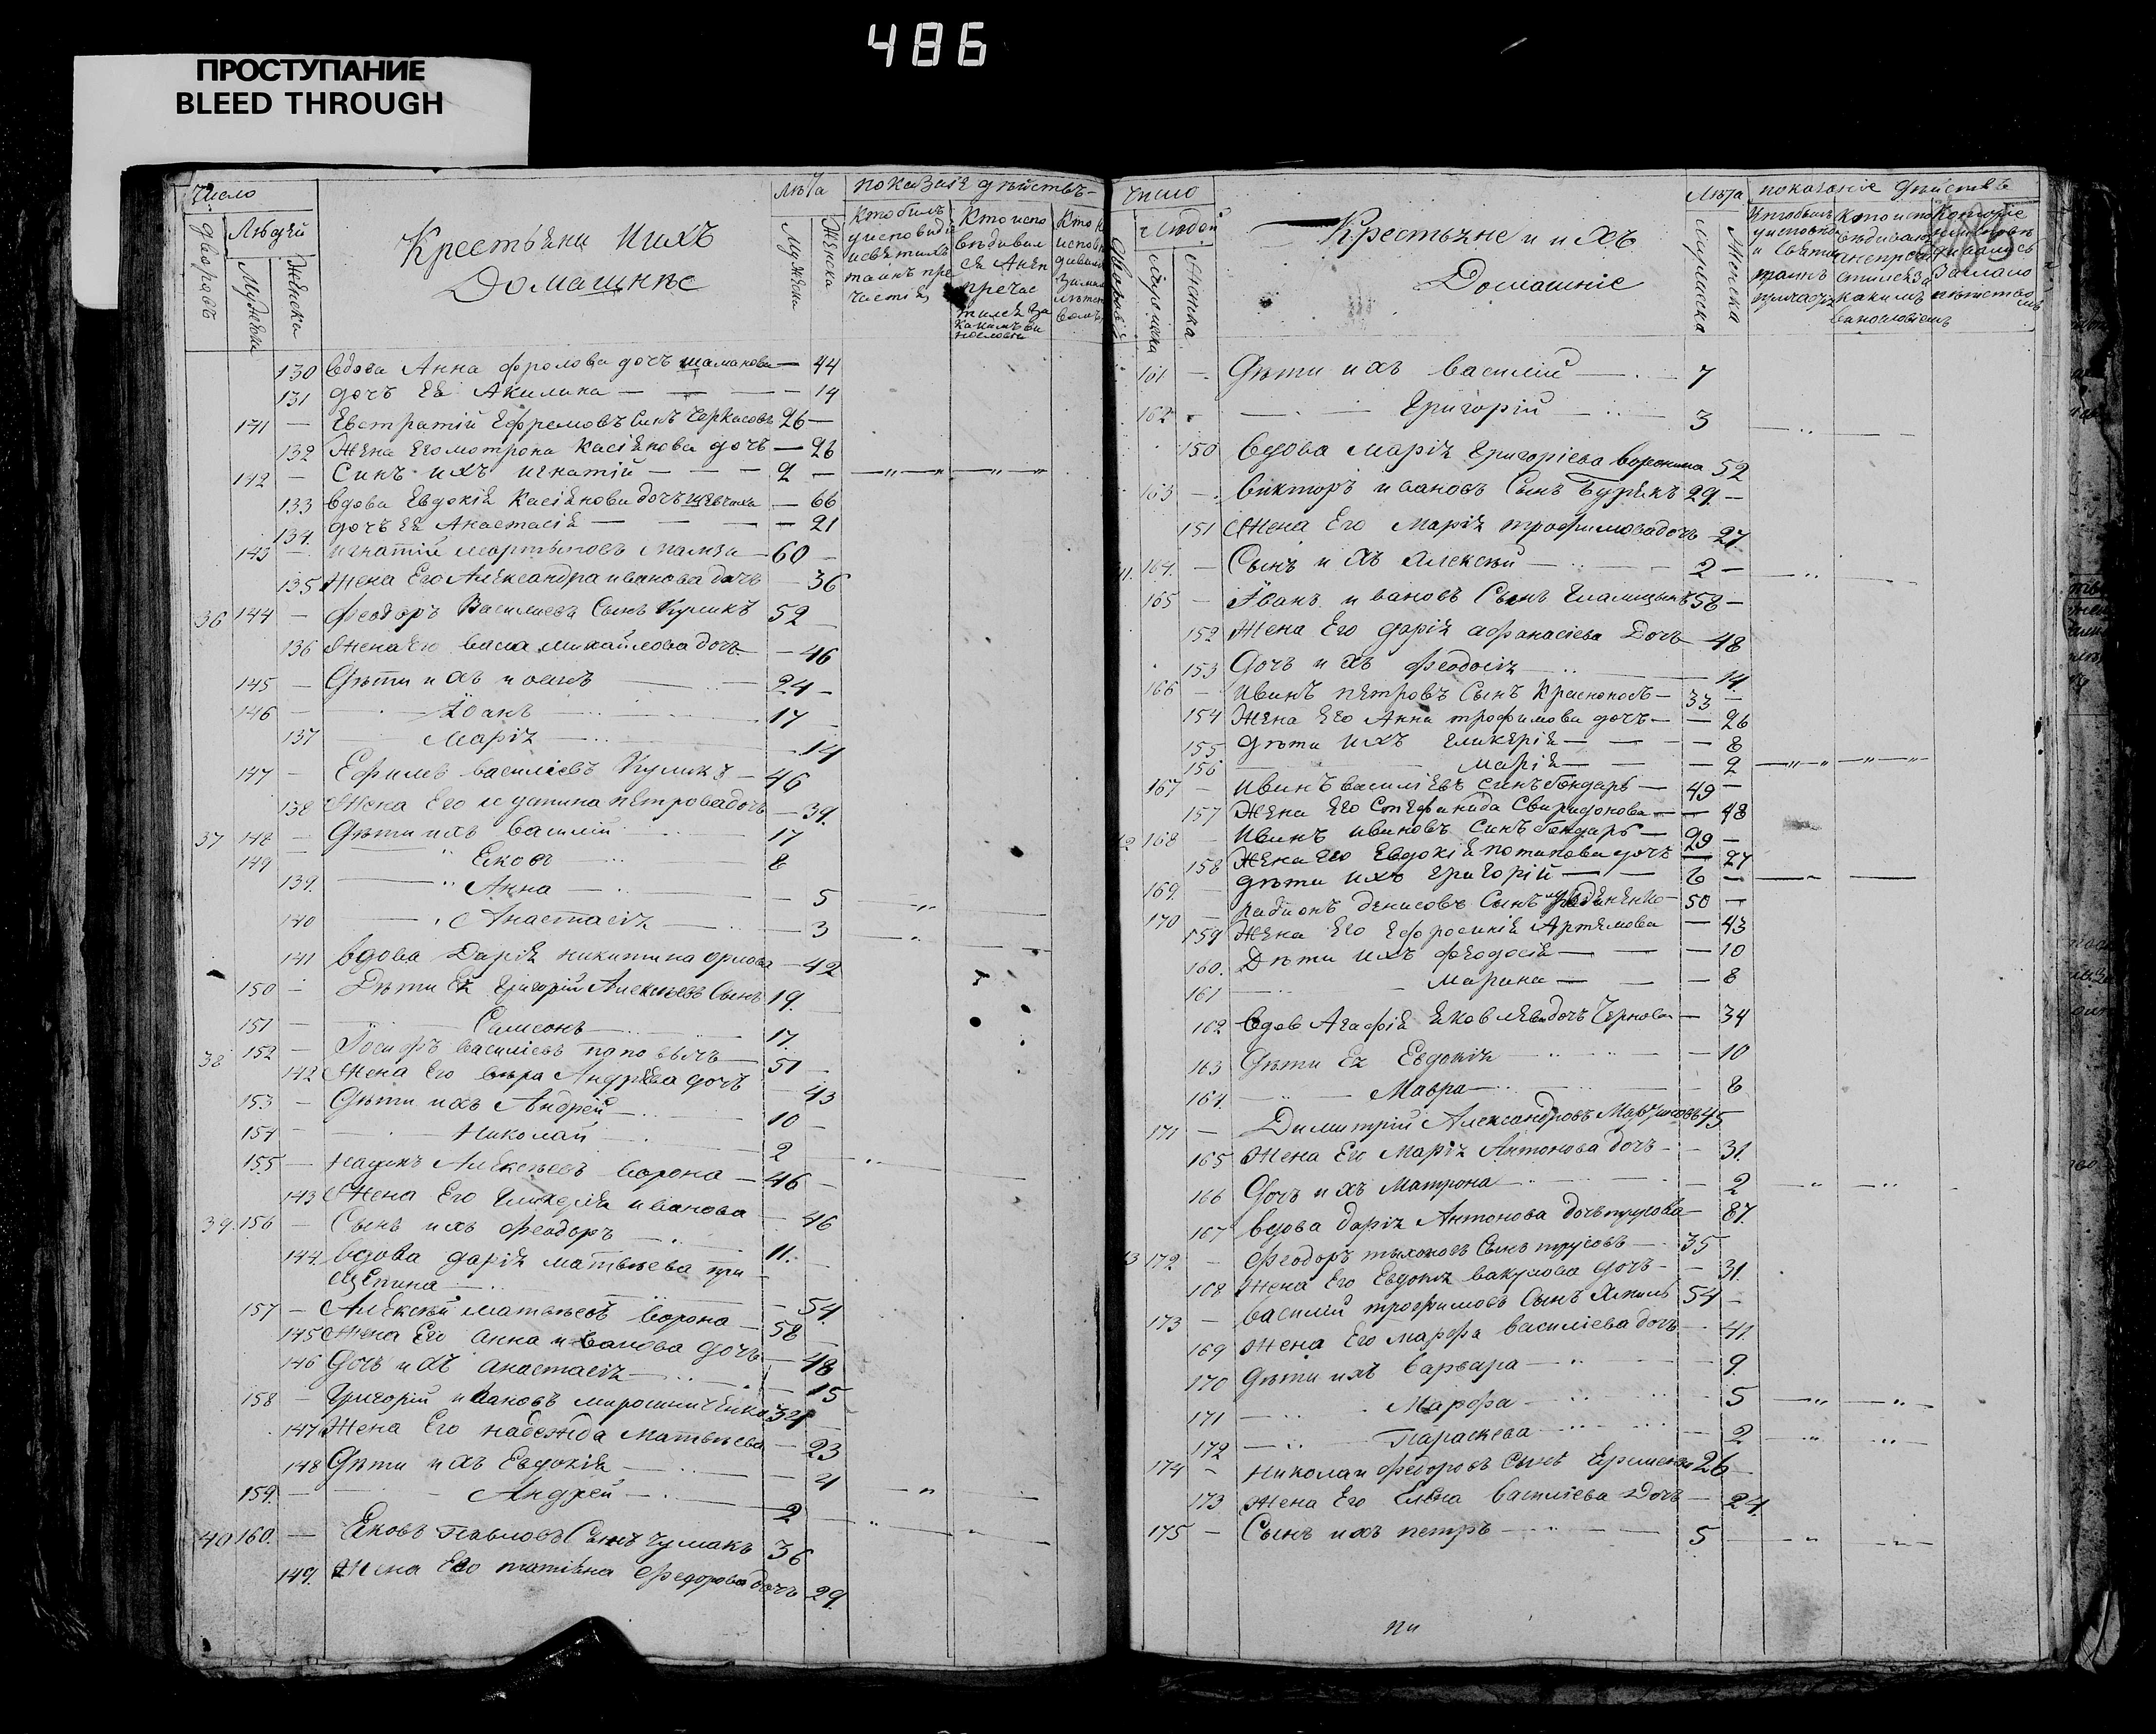 486
ПРОСТУПАНИЕ
BLEED THROUGH
Число
Людей
дворовъ
Мужеска
Женска
Крестьяни и ихъ
Домашнѣе
Лѣта
Мужеска
Женска
показаніе дѣйствъ
130 вдова Анна фролова дочъ шаманова — 44
131 дочъ Ея Акилина — 14
141 — Евстратій Ефремовъ Синъ Черкасовъ 26 —
132 Жена Его мотрона касіянова дочъ — 26
142 — Синъ ихъ игнатій — 2 —
133 вдова Евдокія Касіянова дочъ — 66
134 дочъ Ея Анастасія — 21
143 — игнатій мартыновъ 60 —
135 Жена Его Александра иванова дочъ — 36
36 144 — Феодоръ Василиевъ Сынъ Куликъ 52
136 Жена Его васса михайлова дочъ — 46
145 — Дѣти ихъ иосифъ 24 —
146 — Іоанъ 17 —
137 Марія 14
147 — Ефимъ василіевъ Куликъ — 46
138 Жена Его иустина петрова дочъ — 39.
37 148 — Дѣти ихъ василій 17
149 Яковъ 8
139. Анна — 5
140 Анастасія — 3
141 вдова Дарія никитина орлова — 42
150 — Дѣти Ея Григорій Алексѣевъ Сынъ 19.
151 — Самсонъ 17.
38 152 — Іосифъ василіевъ поповычъ 51 —
142 Жена Его вѣра Андрѣева дочъ 43
153 — Дѣти ихъ Андрей 10 —
154 — Николай 2
155 — Алексѣевъ ворона — 46 —
143 Жена Его Гликерія иванова — 46
39. 156 — Сынъ ихъ феодоръ 11. —
144. вдова дарія матвѣева при
щепина — 54.
157 — Алексѣй матвѣевъ ворона — 58
145 Жена Его анна иванова дочъ — 48
146 Дочъ ихъ анастасія — 15
158 — Григорій ивановъ мирошниченко 34
147 Жена Его надежда матвѣева — 23
148 Дѣти ихъ Евдокія — 4
159. — Андрей — 2
40 160. — Яковъ павловъ Сынъ чумакъ 36
149. Жена Его татіяна Федорова дочъ 29.
Число
Людей
дворовъ
Мужеска
Женска
Крестьяне и ихъ
Домашніе
Лѣта
Мужеска
Женска
показаніе дѣйствъ
161 — Дѣти ихъ василій — 7
162 — Григорій — 3
150 вдова Марія Григоріева воронина 52
163 — викторъ ивановъ Сынъ Бурякъ 29 —
151 Жена Его Марія трофимова дочъ 27
164. — Сынъ ихъ Алексѣй — 2 —
165 — Іванъ ивановъ Сынъ 58 —
152 Жена Его дарія афанасіева Дочъ 48
153 Дочъ ихъ Феодосія 14.
166 — Иванъ петровъ Сынъ Красноносъ — 33 —
154 Жена Его Анна трофимова дочъ — 26
155 Дѣти Ихъ Гликерія — 8
156 Марія — 2
167 — Иванъ василіевъ синъ бондарь — 49 —
157 Жена Его Стефанида Свиридонова — 48
168 Иванъ ивановъ Синъ бондарь — 29 —
158 Жена Его Евдокія потапова дочъ — 27
169. — Дѣти Ихъ Григорій — 6 —
170 — Радіонъ денисовъ Сынъ 50 —
159 Жена Его Ефросинія Артемова — 43
160. Дѣти Ихъ феодосія — 10
161 Марина — 8
162 вдова Агафія Яковлева дочъ Чернова — 34
163 Дѣти Ея Евдокія — 10
164. Мавра — 8
171 — Димитрій Александровъ 45
165 Жена Его Марія Антонова дочъ — 31.
166 Дочъ ихъ Матрона — 2
167 вдова дарія Антонова дочъ трусова — 87.
172 — Феодоръ тихоновъ Сынъ трусовъ 35
168 Жена Его Евдокія вакулова дочъ — 31.
173 — василій трофимовъ Сынъ Хмиль 54 —
169 Жена Его Марфа василіева дочъ 41.
170 Дѣти ихъ варвара — 9.
171 Марфа 5
172 Параскева 2
174 — Николай Феодоровъ Сынъ Еременко 26
173 Жена Его Елена василіева Дочъ — 24.
175 — Сынъ ихъ петръ — 5